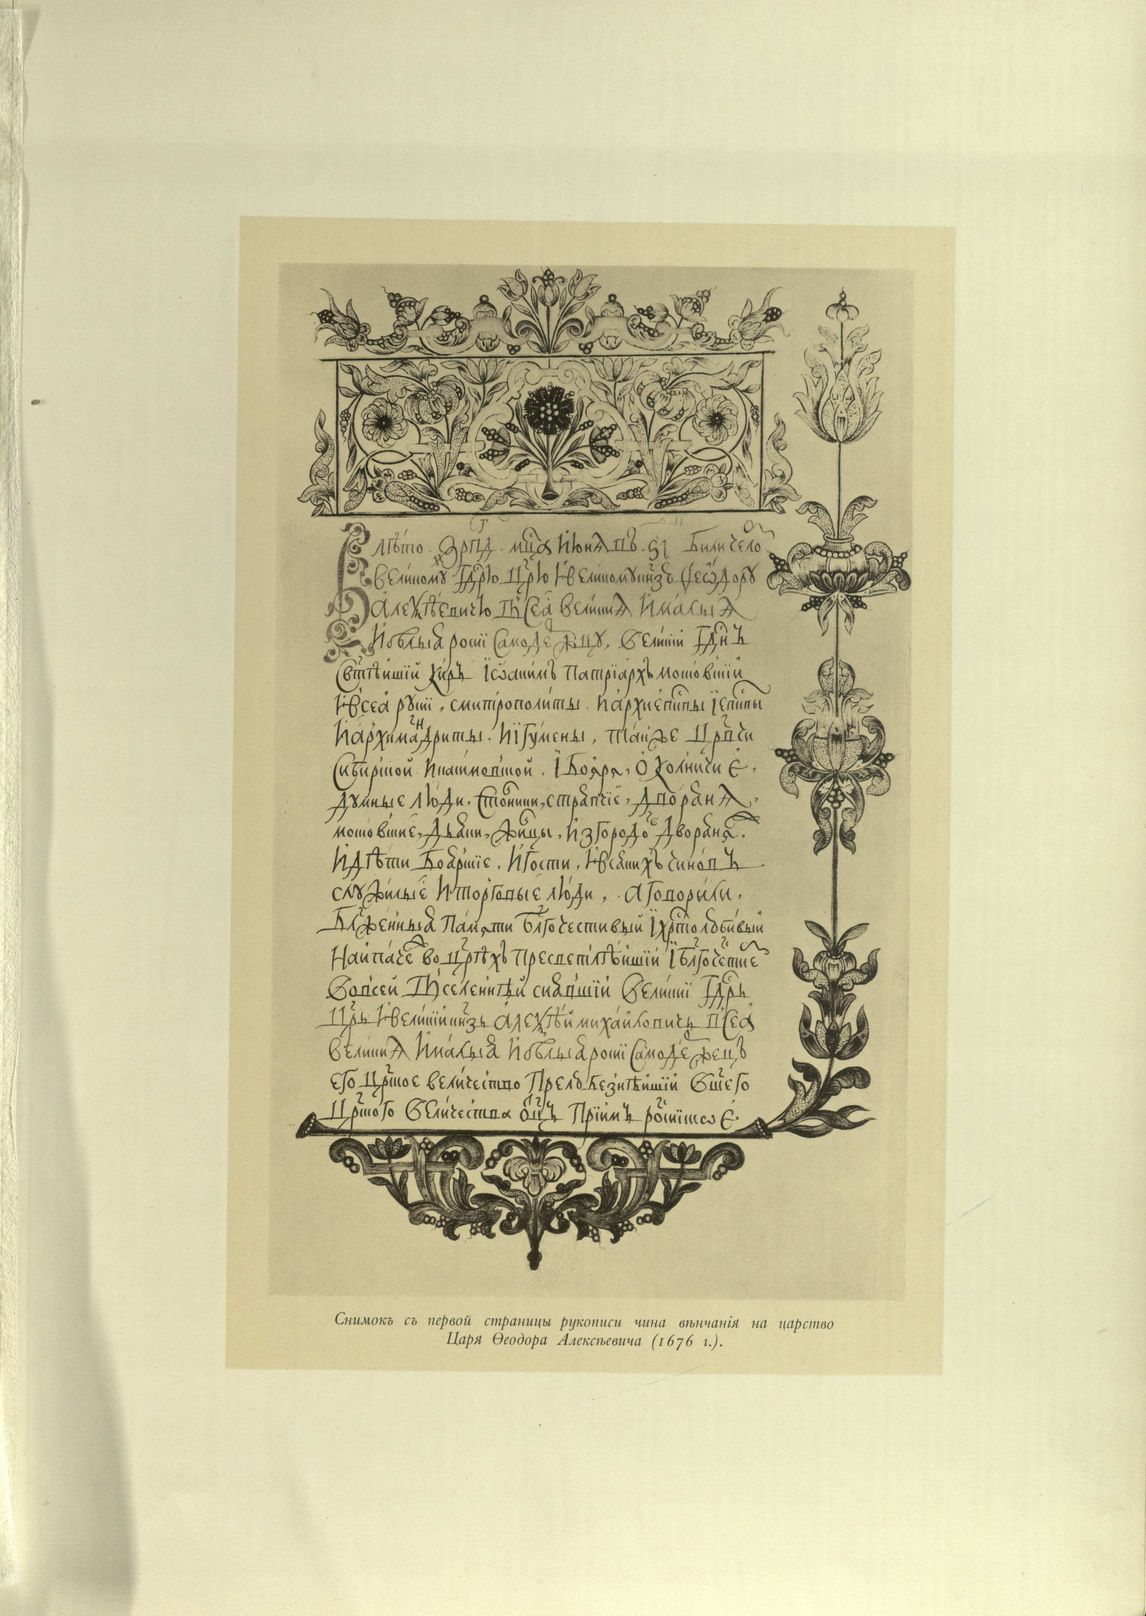 лѣто ҂зрпд мцⷭ҇а Июнѧ въ ѕ҃і Били чело
великому Гдрю Црю И великому кнзю Ѳеѡдору
Алеѯѣевичю всеа великиѧ И малыѧ
И бѣлыѧ росиї Самодержцу, Великиї Гднъ
Свтѣишїй Кирь Іѡакимъ Патрїархъ московскїй
И всеа русиї, смитрополиты. Иархиепкпы Їепкпы
Иархимандриты. Иїгумены, также Црвчи
Сибирской Икасимовской. Ї Бояря, Околничиє,
Думные люди, Столники, стряпчїе, дворянѧ,
московские, Дьяки, Жилцы, Из городовъ дворянѧ.
И дѣти Боярские, И гости, И всякихъ чиновъ
служилые И торговые люди, а говорили,
Блженныѧ Памяти блгочестивый Їхрстолюбивый
Наипаче во црѣхъ пресвѣтлѣйшїй Їблгочстие
Во всей вселеннѣй сиявшїй Великиї Гдрь
Црь И великїй кнзь Алеѯѣй михайловичь всеа
великиѧ И малыѧ И бѣлыѧ росиї Самодержец
его Црское величество Прелюбезнѣйшїй Вшего
Црского Величества оцъ Прїимъ росиїское
Снимокъ съ первой страницы рукописи чина вѣнчанія на царство
Царя Ѳеодора Алексѣевича (1676 г.).